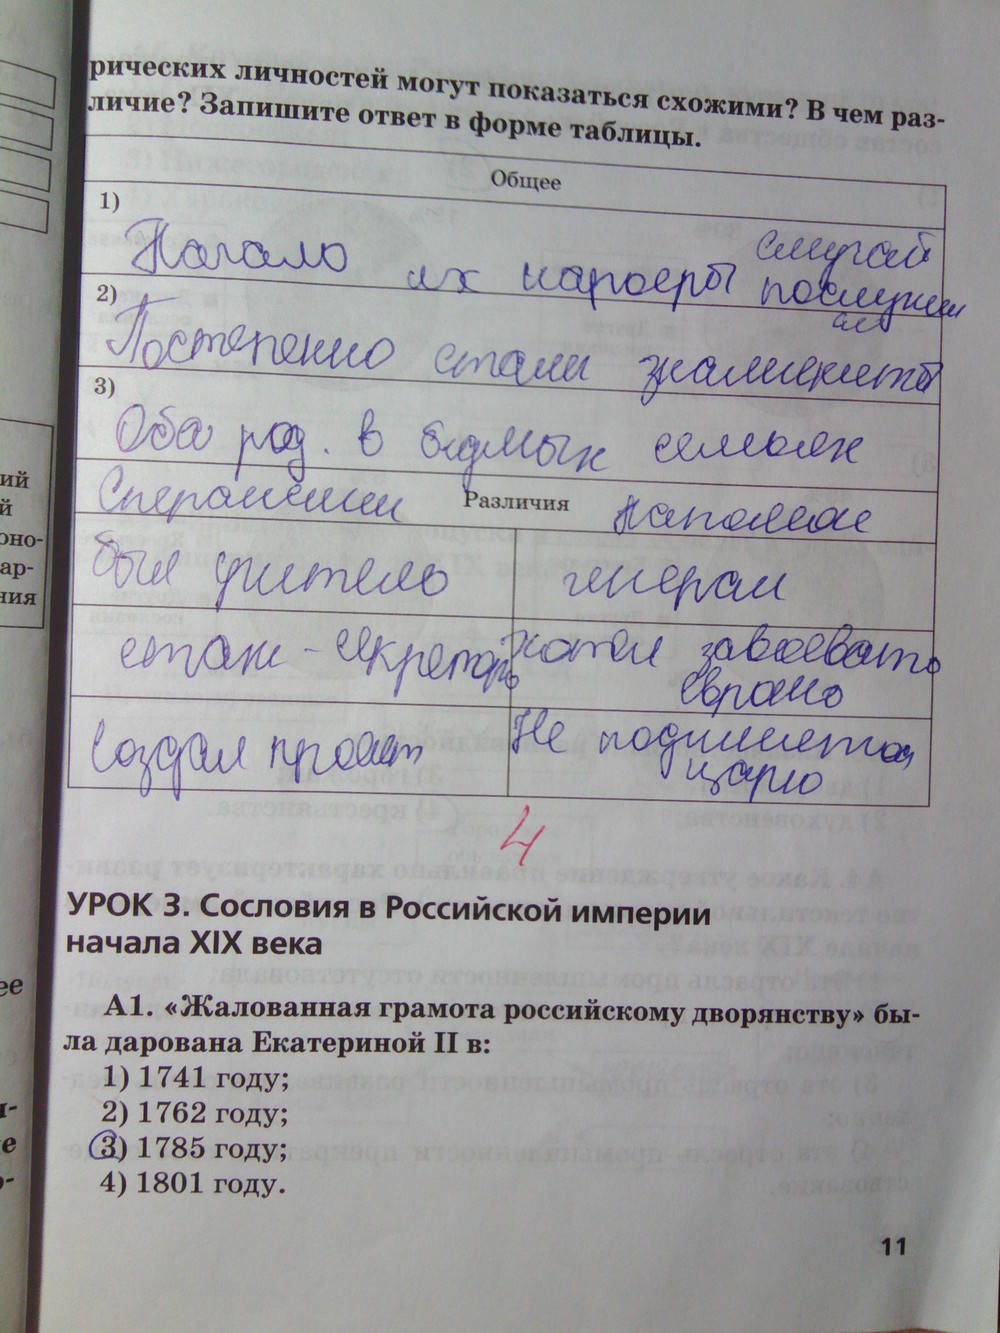 рических личностей могут показаться схожими? В чем раз-
личие? Запишите ответ в форме таблицы.
Общее
1)
Начало их карьеры случай
послужил
2)
Постепенно стали знамениты
3)
Оба род. в бедных семьях
Сперанский Различия Наполеон
был учитель генерал
стал - секретарь хотел завоевать
Европо
создал проект Не подчиняется
царю
4
УРОК 3. Сословия в Российской империи
начала XIX века
А1. «Жалованная грамота российскому дворянству» бы-
ла дарована Екатериной II в:
1) 1741 году;
2) 1762 году;
3) 1785 году;
4) 1801 году.
11
ий
й
оно-
ар-
ния